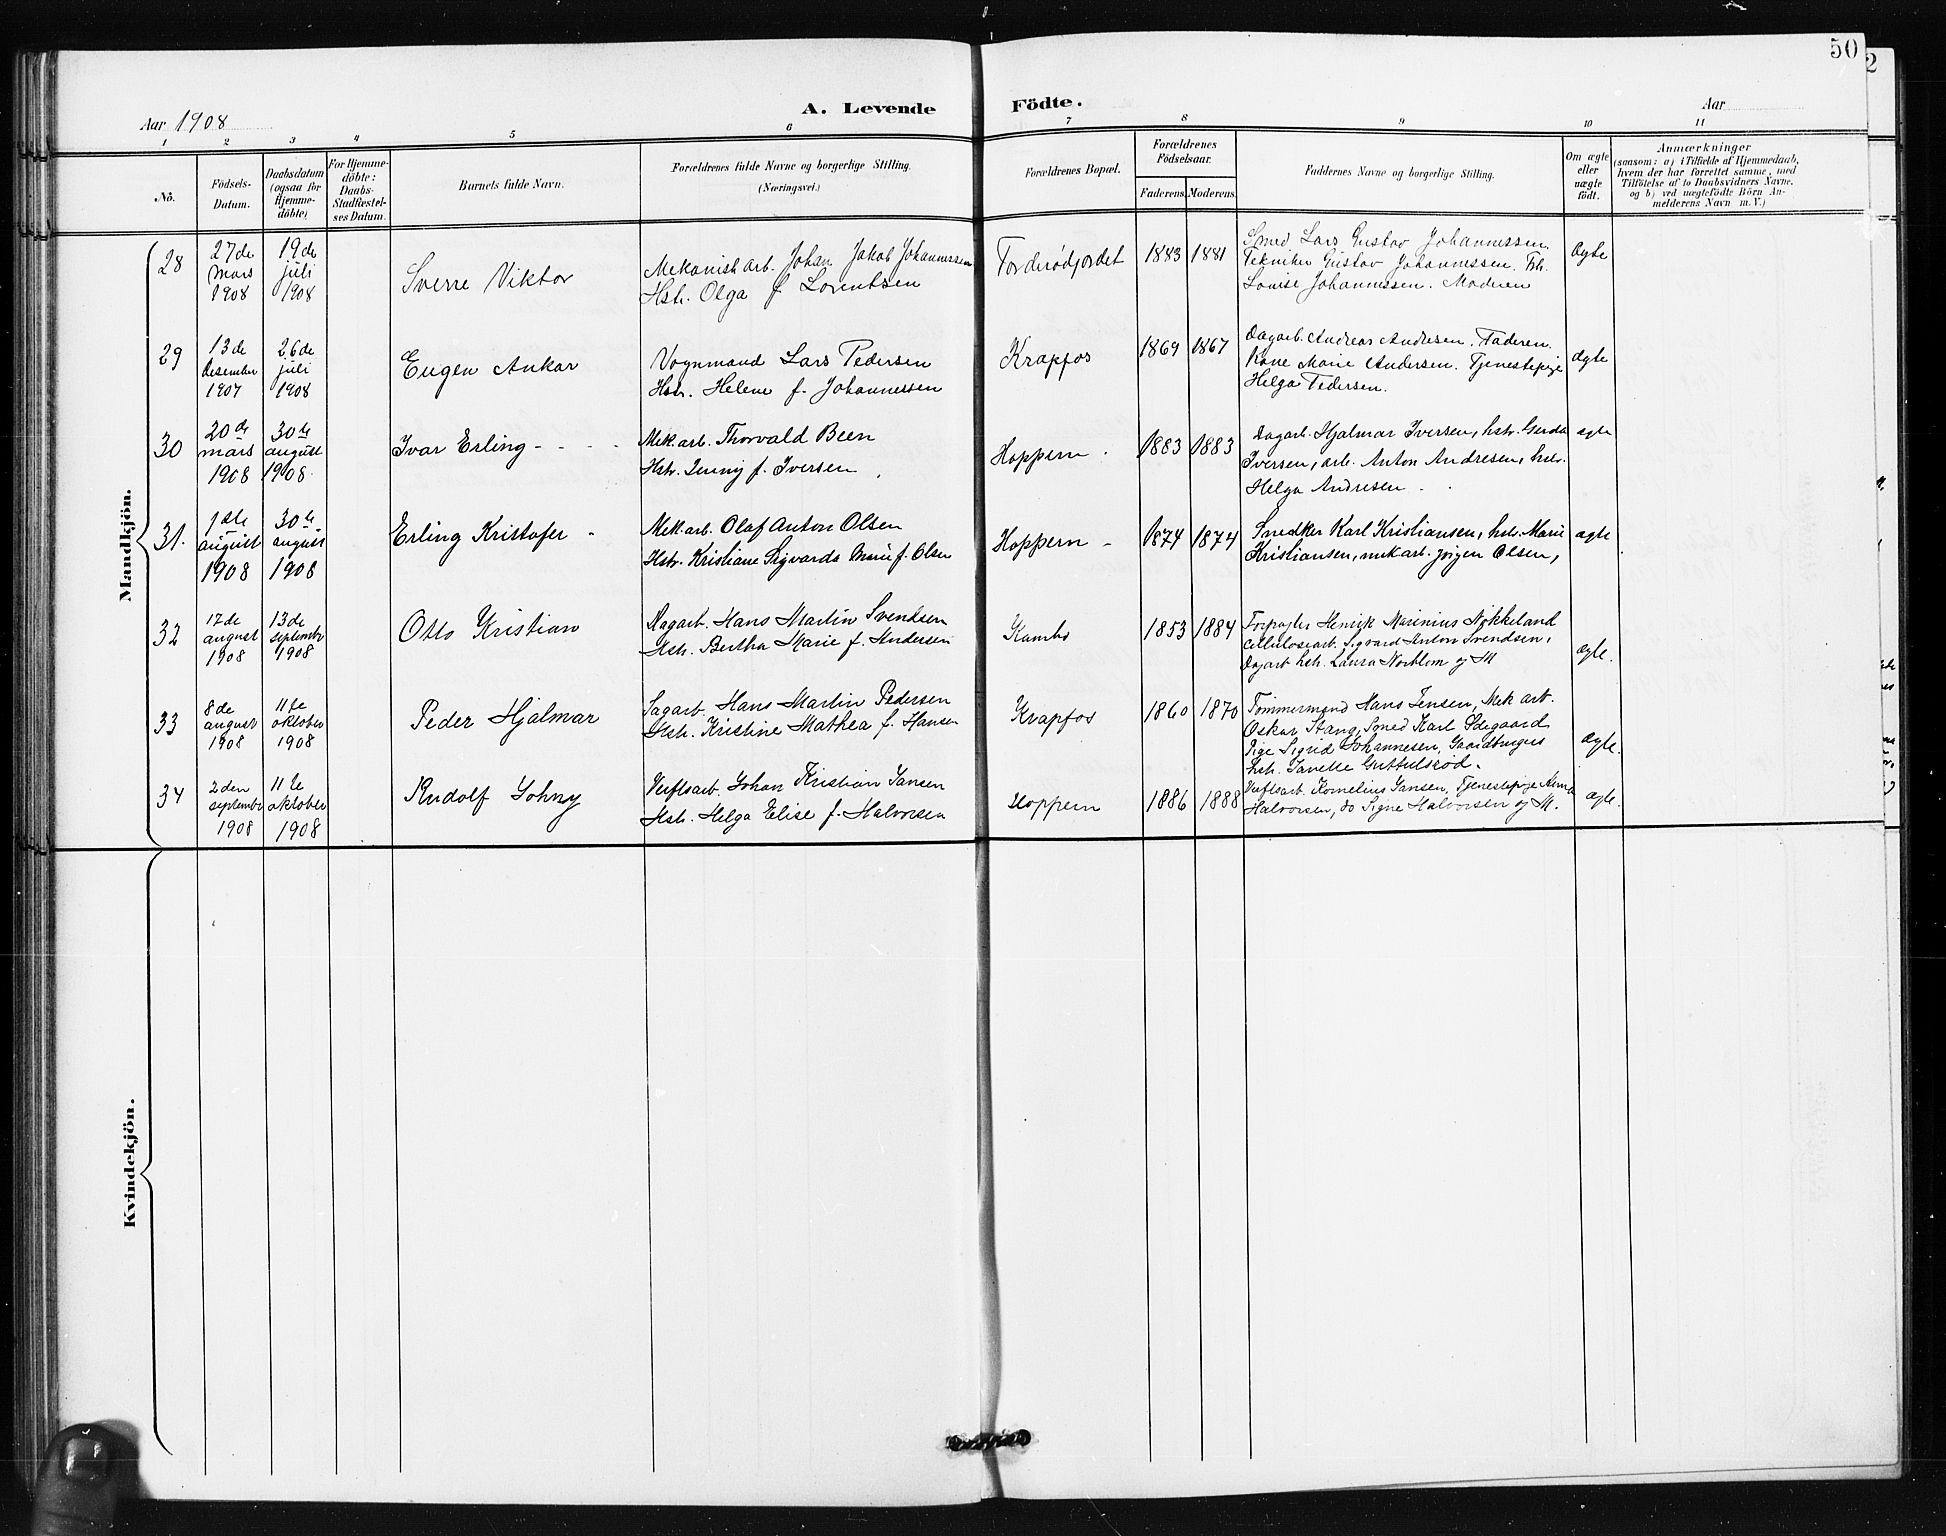 50
2
A. Levende Födte.
Aar 1908
Aar
1 2 3 4 5 6 7 8 9 10 11
No.
Födsels-
Datum.
Daabsdatum
(ogsaa for
Hjemme-
döbte)
For Hjemme-
döbte:
Daabs-
Stadfæstel-
ses Datum.
Barnets fulde Navn.
Forældrenes fulde Navne og borgerlige Stilling.
(Næringsvei.)
Forældrenes Bopæl.
Forældrenes
Födselsaar.
Faderens.
Moderens.
Faddernes Navne og borgerlige Stilling.
Om ægte
eller
uægte
födt.
Anmærkninger
(saasom: a) i Tilfælde af Hjemmedaab,
hvem der har forrettet samme, med
Tilföielse af to Daabsvidners Navne,
og b) ved uægtefödte Börn An-
melderens Navn m. V.)
Mandkjön.
28
27de
mars
1908
19de
juli
1908
Sverre Viktor
Mekanisk arb. Johan Jakob Johannessen
Hstr. Olga f Lorentsen
1883
1881
Smed Lars Gustav Johannessen.
Tekniker Gustav Johannessen.
Louise Johannessen. Moderen
Ægte
29
13de
desember
1907
26de
juli
1908
Eugen Ankar
Vognmand Lars Pedersen
Hstr. Helene f. Johannessen
Krapfos
1869
1867
Dagarb. Andreas Andresen. Faderen.
Kone Marie Andersen. Tjenestepige
Helga Pedersen.
ægte
30
20de
mars
1908
30te
august
1908.
Ivar Erling - - - -
Mek.arb. Thorvald Been
Hstr. Jenny f. Iversen
Hoppern.
1883
1883
Dagarb. Hjalmar Iversen, hstr. Gerda
Iversen, arb. Anton Andresen, hstr.
Helga Andresen
ægte
31.
1ste
august
1908
30te
august
1908
Erling Kristofer -
Mek.arb. Olaf Anton Olsen
Hstr. Kristiane Sigvarda Marie f. Olsen
Hoppern -
1874
1874
Snedker Karl Kristiansen, hstr. Marie
Kristiansen, mek arb. Jörgen Olsen,
ægte
32
17de
august
1908
13de
september
1908
Otto Kristian
Dagarb. Hans Martin Svendsen
Hstr. Bertha Marie f. Andersen
Kambo
1853
1884
Forpagter Henrik Marinius Nökkeland
Cellulosearb. Sigvard Anton Svendsen,
Dagarb hstr. Laura Norblom og M
ægte.
33
8de
august
1908
11te
oktober
1908
Peder Hjalmar
Sagarb. Hans Martin Pedersen
Hstr. Kristine Mathea f. Hansen
Krapfos
1860
1870
Tömmermand Hans Jensen, Mek arb.
Oskar Stang, Smed Karl Ødegaard
Pige Sigrid Johannesen, Gaardbrugers
hstr. Janette
ægte.
34
2den
september
1908
11te
oktober
1908
Rudolf Johny
Verftsarb. Johan Kristian Jansen
Hstr. Helga Elise f. Halvorsen
Hoppern
1886
1888
Verftsarb. Kornelius Jansen, Tjenestepige
Halvorsen, do Signe Halvorsen og M.
ægte.
Kvindekjön.